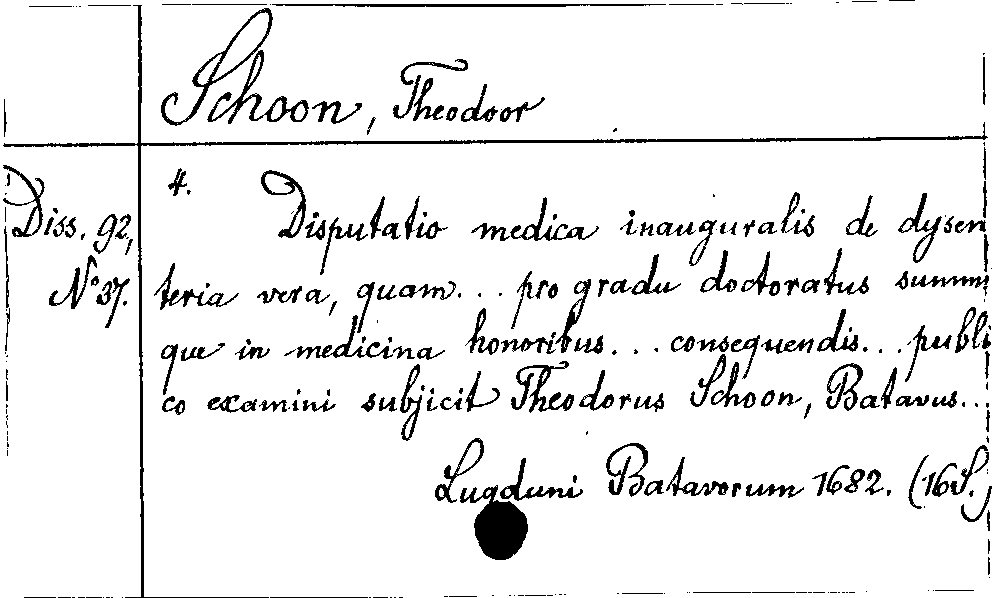 Schoon, Theodoor
Diss. 92,
No 37.
4.
Disputatio medica inauguralis de dysen
teria vera, quam... pro gradu doctoratus summis
que in medicina honoribus... consequendis... publi
co examini subjicit Theodorus Schoon, Batavus...
Lugduni Batavorum 1682. (16 S.)